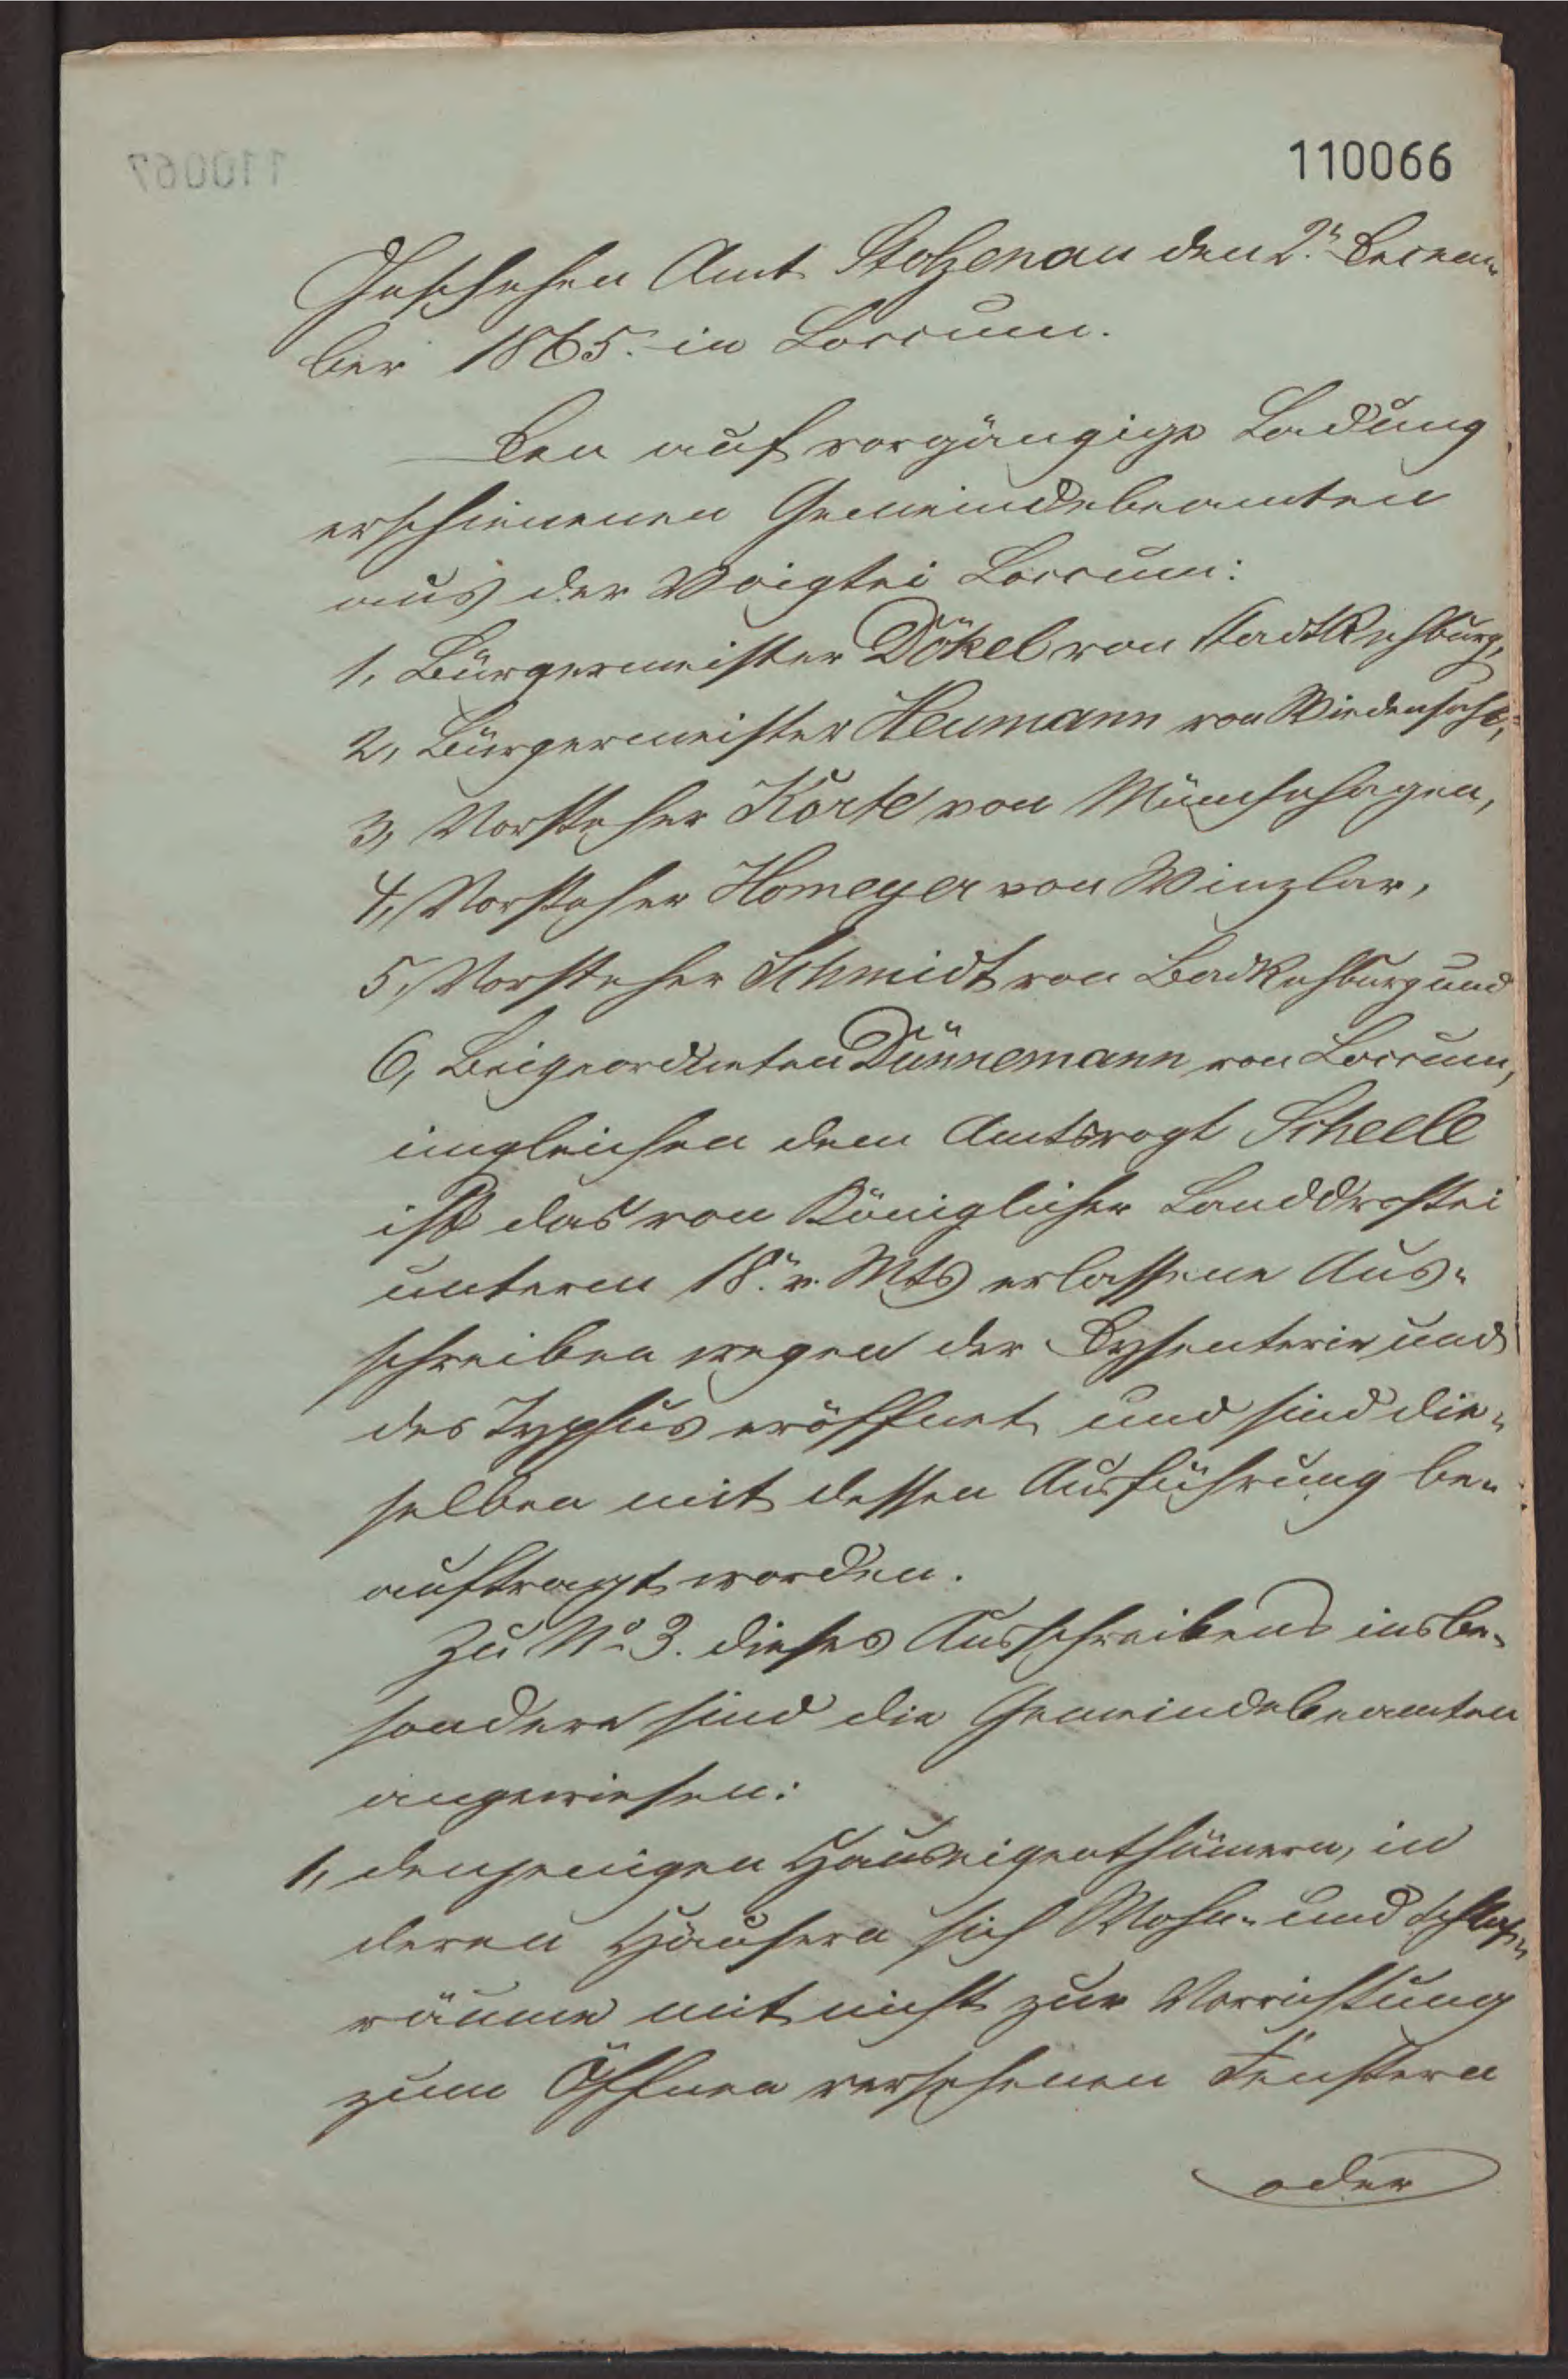 110066
Geschehen Amt Stolzenau den 2.n Decem-
ber 1865. in Loccum.
Den auf vorgängige Ladung
erschienenen Gemeindebeamten
aus der Voigtei Loccum:
1, Bürgermeister Dökel von Stadt Rehburg,
2, Bürgermeister Heumann von Wiedensahl,
3, Vorsteher Körte von Münchehagen,
4, Vorsteher Homeyer von Winzlar,
5, Vorsteher Schmidt von Bad Rehburg und
6, Beigeordneten Dünnemann von Loccum,
imgleichen dem Amtsvogt Scheele
ist das von Königlicher Landdrostei
unterm 18.n v. Mts erlassene Aus-
schreiben wegen der Dysenterie und
des Typhus eröffnet und sind die-
selben mit dessen Ausführung be-
auftragt worden.
Zu No 3. dieses Ausschreibens insbe-
sondere sind die Gemeindebeamten
angewiesen:
1, denjenigen Hauseigenthümern, in
deren Häusern sich Wohn- und Schlaf-
räume mit nicht zur Vorrichtung
zum Öffnen versehenen Fenstern
oder